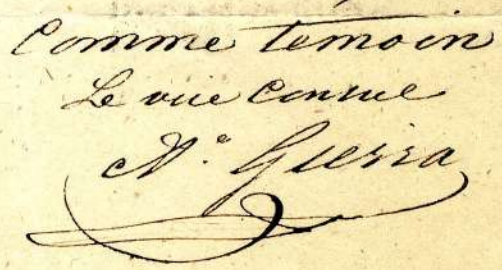 Comme temoin
Le vice consul
N.º Guerra